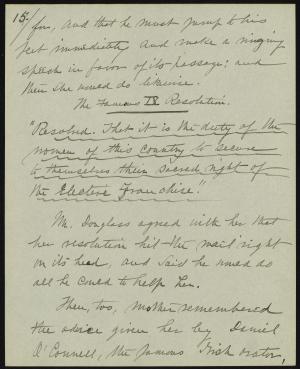 15/
for, and that he must jump to his
feet immediately and make a ringing
speech in favor of its passage; and
then she would do likewise.
The famous IX Resolution.
"Resolved. That it is the duty of the
women of this country to secure
to themselves their sacred right of
the Elective Franchise".
Mr. Douglass agreed with her that
her resolution hit the nail right
on its head, and said he would do
all he could to help her.
Then, too, mother remembered
the advice given her by Daniel
O'Connell, the famous Irish orator,